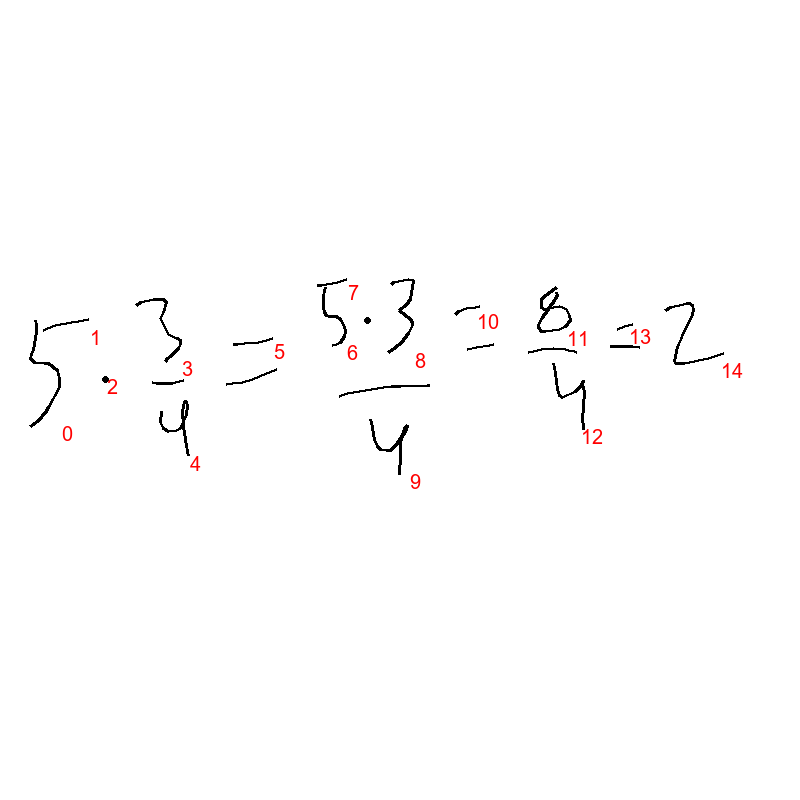 5 · 3/4 = (5 · 3)/4 = 8/4 = 2
0 1 2 3 4 5 6 7 8 9 10 11 12 13 14